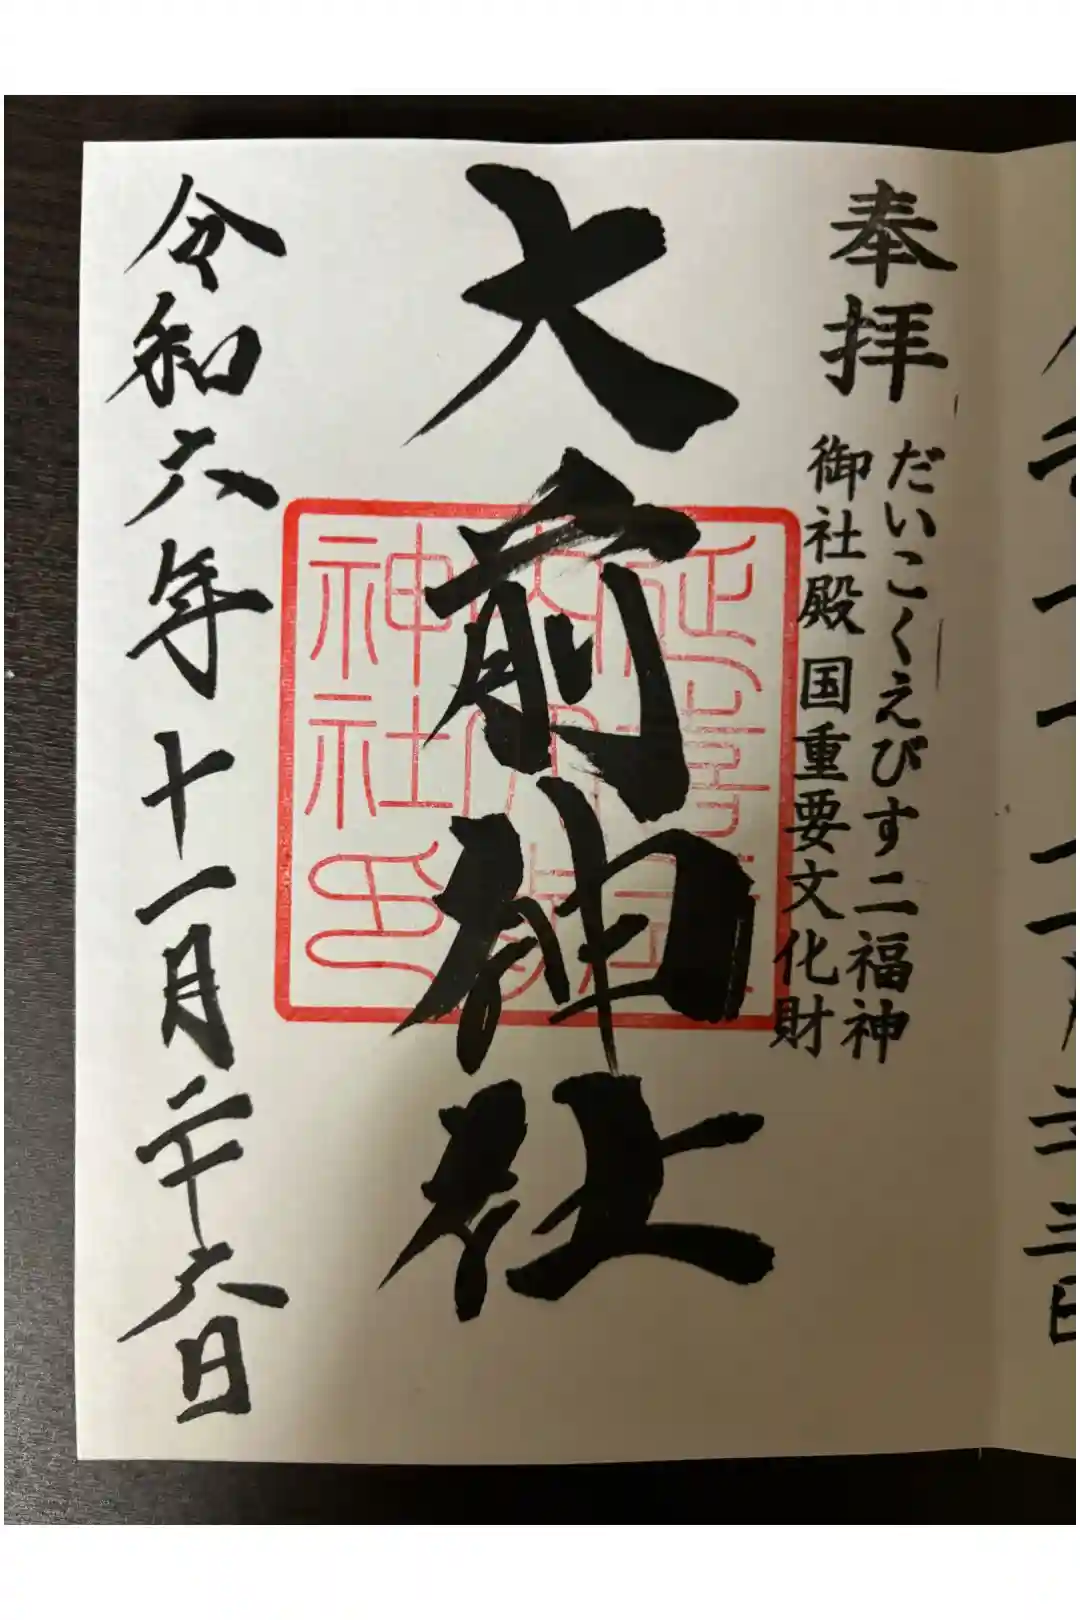 奉拝
だいこくえびす二福神
御社殿 国重要文化財
大前神社
令和六年十一月二十六日